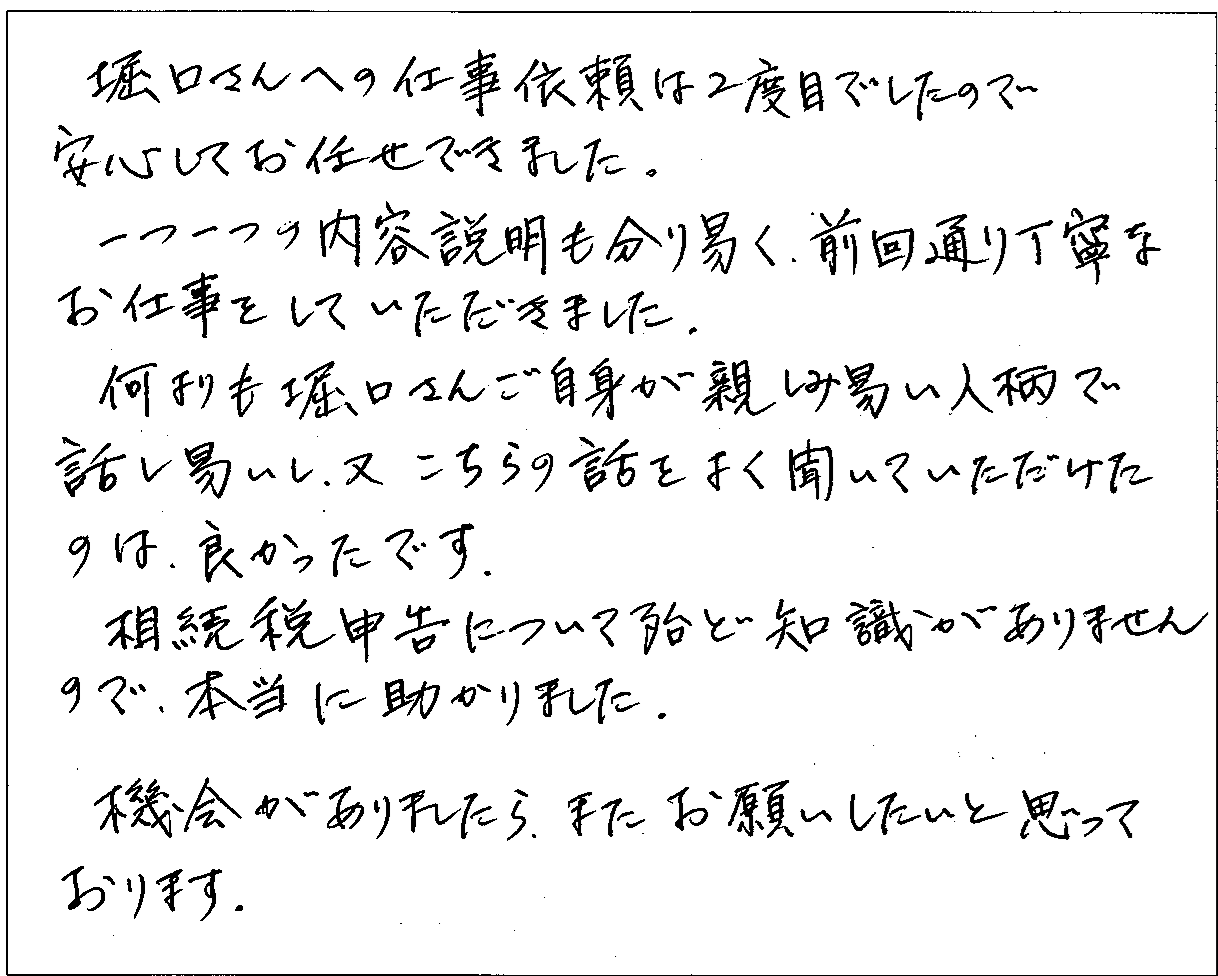 堀口さんへの仕事依頼は2度目でしたので
安心してお任せできました。
一つ一つの内容説明も分り易く、前回通り丁寧な
お仕事をしていただきました。
何よりも堀口さんご自身が親しみ易い人柄で
話し易いし、又こちらの話をよく聞いていただけた
のは、良かったです。
相続税申告について殆ど知識がありません
ので、本当に助かりました。
機会がありましたら、またお願いしたいと思って
おります。